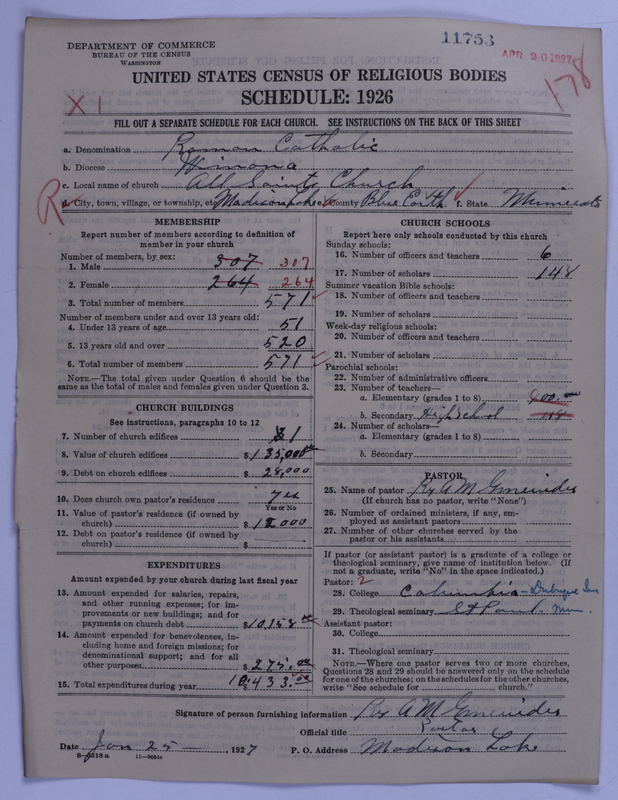 DEPARTMENT OF COMMERCE
BUREAU OF THE CENSUS
WASHINGTON
11753
APR 20 1927
178
UNITED STATES CENSUS OF RELIGIOUS BODIES
SCHEDULE: 1926
X 1
FILL OUT A SEPARATE SCHEDULE FOR EACH CHURCH. SEE INSTRUCTIONS ON THE BACK OF THIS SHEET
a. Denomination Roman Catholic
b. Diocese Winona
c. Local name of church All Saints Church
R
d. City, town, village, or township, etc. Madison Lake e. County Blue Earth f. State Minnesota
MEMBERSHIP
Report number of members according to definition of
member in your church
Number of members, by sex:
1. Male 307 307
2. Female 264 264
3. Total number of members 571
Number of members under and over 13 years old:
4. Under 13 years of age 51
5. 13 years old and over 520
6. Total number of members 571
NOTE.—The total given under Question 6 should be the
same as the total of males and females given under Question 3.
CHURCH BUILDINGS
See instructions, paragraphs 10 to 12
7. Number of church edifices 1
8. Value of church edifices $135,000
9. Debt on church edifices $28,000
10. Does church own pastor's residence yes
Yes or No
11. Value of pastor's residence (if owned by
church) $12,000
12. Debt on pastor's residence (if owned by
church) $
EXPENDITURES
Amount expended by your church during last fiscal year
13. Amount expended for salaries, repairs,
and other running expenses; for im-
provements or new buildings; and for
payments on church debt $10,158.00
14. Amount expended for benevolences, in-
cluding home and foreign missions; for
denominational support; and for all
other purposes $275.00
15. Total expenditures during year $10,433.00
CHURCH SCHOOLS
Report here only schools conducted by this church
Sunday schools:
16. Number of officers and teachers 6
17. Number of scholars 148
Summer vacation Bible schools:
18. Number of officers and teachers
19. Number of scholars
Week-day religious schools:
20. Number of officers and teachers
21. Number of scholars
Parochial schools:
22. Number of administrative officers
23. Number of teachers—
a. Elementary (grades 1 to 8)
b. Secondary High School
24. Number of scholars—
a. Elementary (grades 1 to 8)
b. Secondary
PASTOR
25. Name of pastor A M
(If church has no pastor, write "None")
26. Number of ordained ministers, if any, em-
ployed as assistant pastors
27. Number of other churches served by the
pastor or his assistants
If pastor (or assistant pastor) is a graduate of a college or
theological seminary, give name of institution below. (If
not a graduate, write "No" in the space indicated.)
Pastor: 2
28. College Columbia - Dubuque Ia
29. Theological seminary St Paul - Minn.
Assistant pastor:
30. College
31. Theological seminary
NOTE.—Where one pastor serves two or more churches,
Questions 28 and 29 should be answered only on the schedule
for one of the churches; on the schedules for the other churches,
write "See schedule for church."
Signature of person furnishing information A M
Official title Pastor
Date Jan 25 — , 1927 P. O. Address Madison Lake
8—5518a 11—9084a